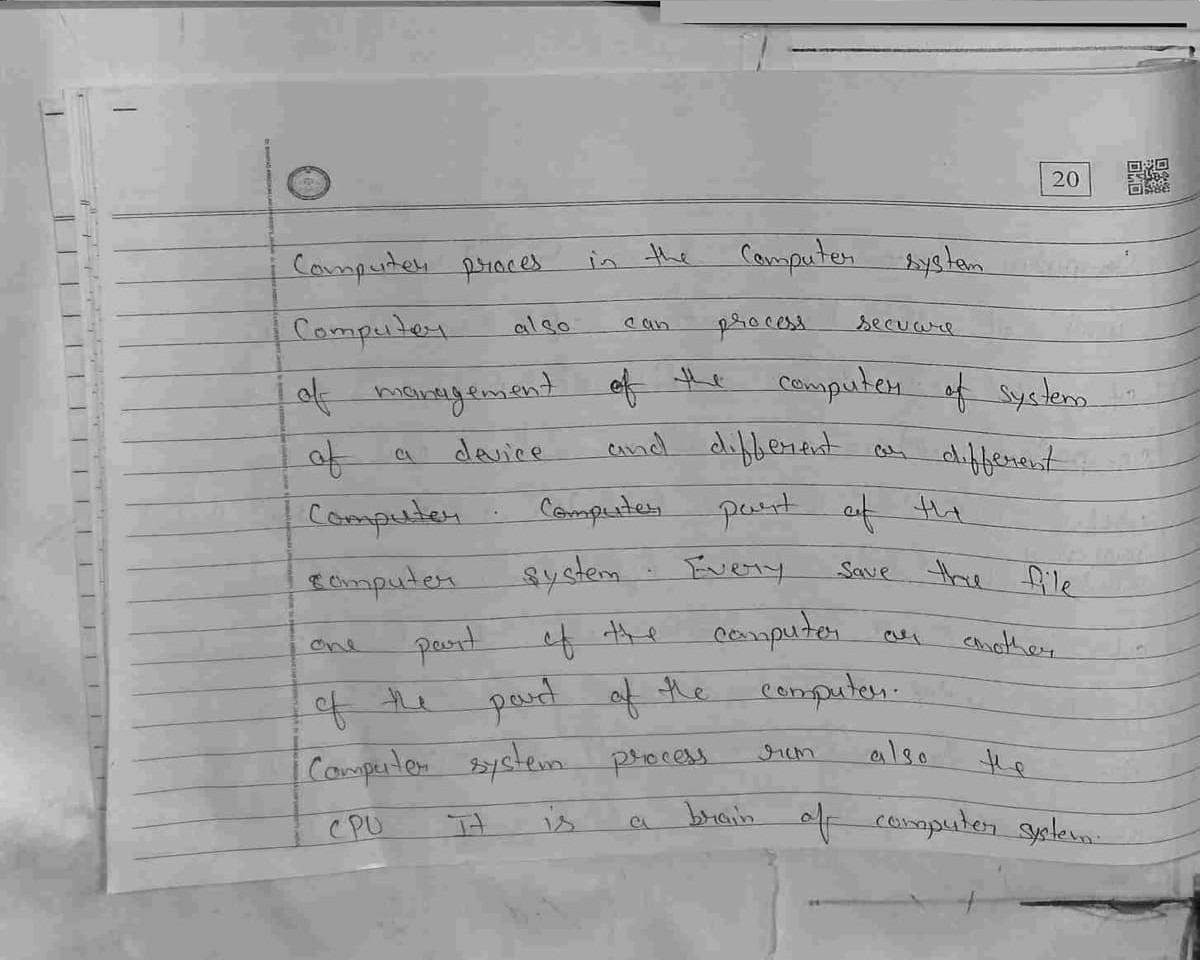 20
Computer proces in the Computer system
Computer also can process secure
of management of the computer of system
of a device and different or different
Computer. Computer part of the
computer system. Every save the file
one part of the computer or another
of the part of the computer.
Computer system process run also the
CPU It is a brain of computer system.